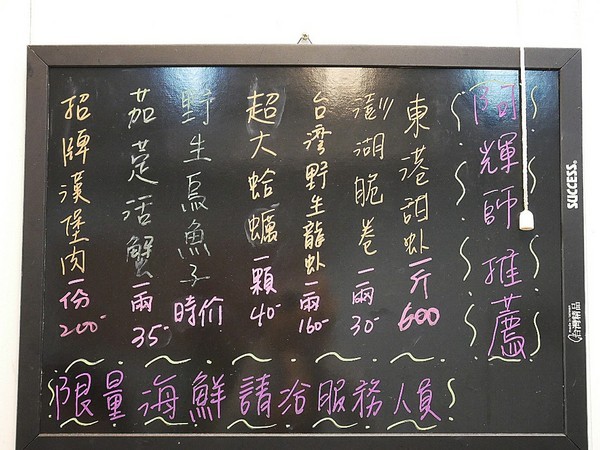 阿輝師推薦
東港甜虾一斤600
澎湖脆卷一兩30-
台湾野生龍虾一兩160-
超大蛤蠣一顆40-
野生烏魚子時价
茄萣活蟹一兩35-
招牌漢堡肉一份200-
限量海鮮請洽服務人員
SUCCESS